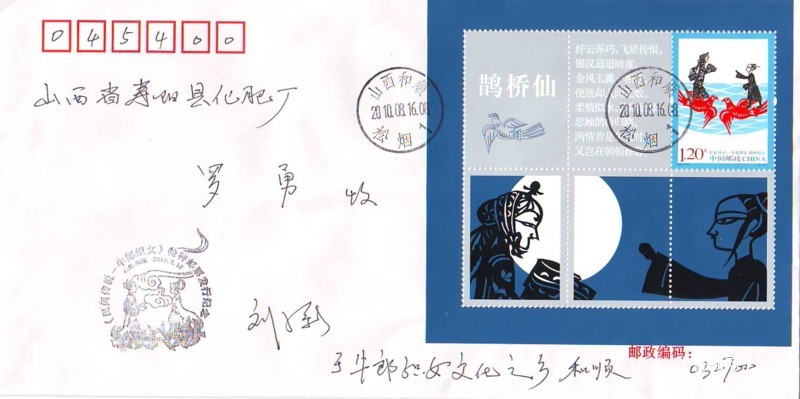 045400
山西省寿阳县化肥厂
罗勇收
鹊桥仙
纤云弄巧，飞星传恨，
银汉迢迢暗度。
金风玉露
便胜却人 数。
柔情似水，
忍顾鹊 归
两情若是 时
又岂在朝朝暮
1.20元
中国邮政 CHINA
山西和顺
2010.08.16.08
松烟 1
山西和顺
2010.08.16.08
松烟 1
《民间传说—牛郎织女》特种邮票发行纪念
2010.8.16
于牛郎织女文化之乡和顺
邮政编码：